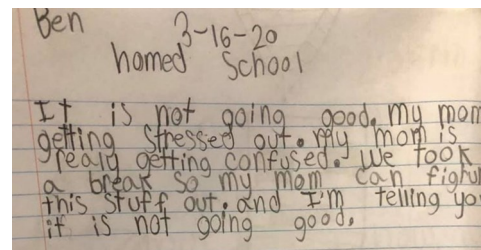 Ben
3-16-20
homed School
It is not going good. my mom
getting stressed out. My mom is
realy getting confused. We took
a break so my mom can figiur
this stuff out. and I'm telling yo
it is not going good.